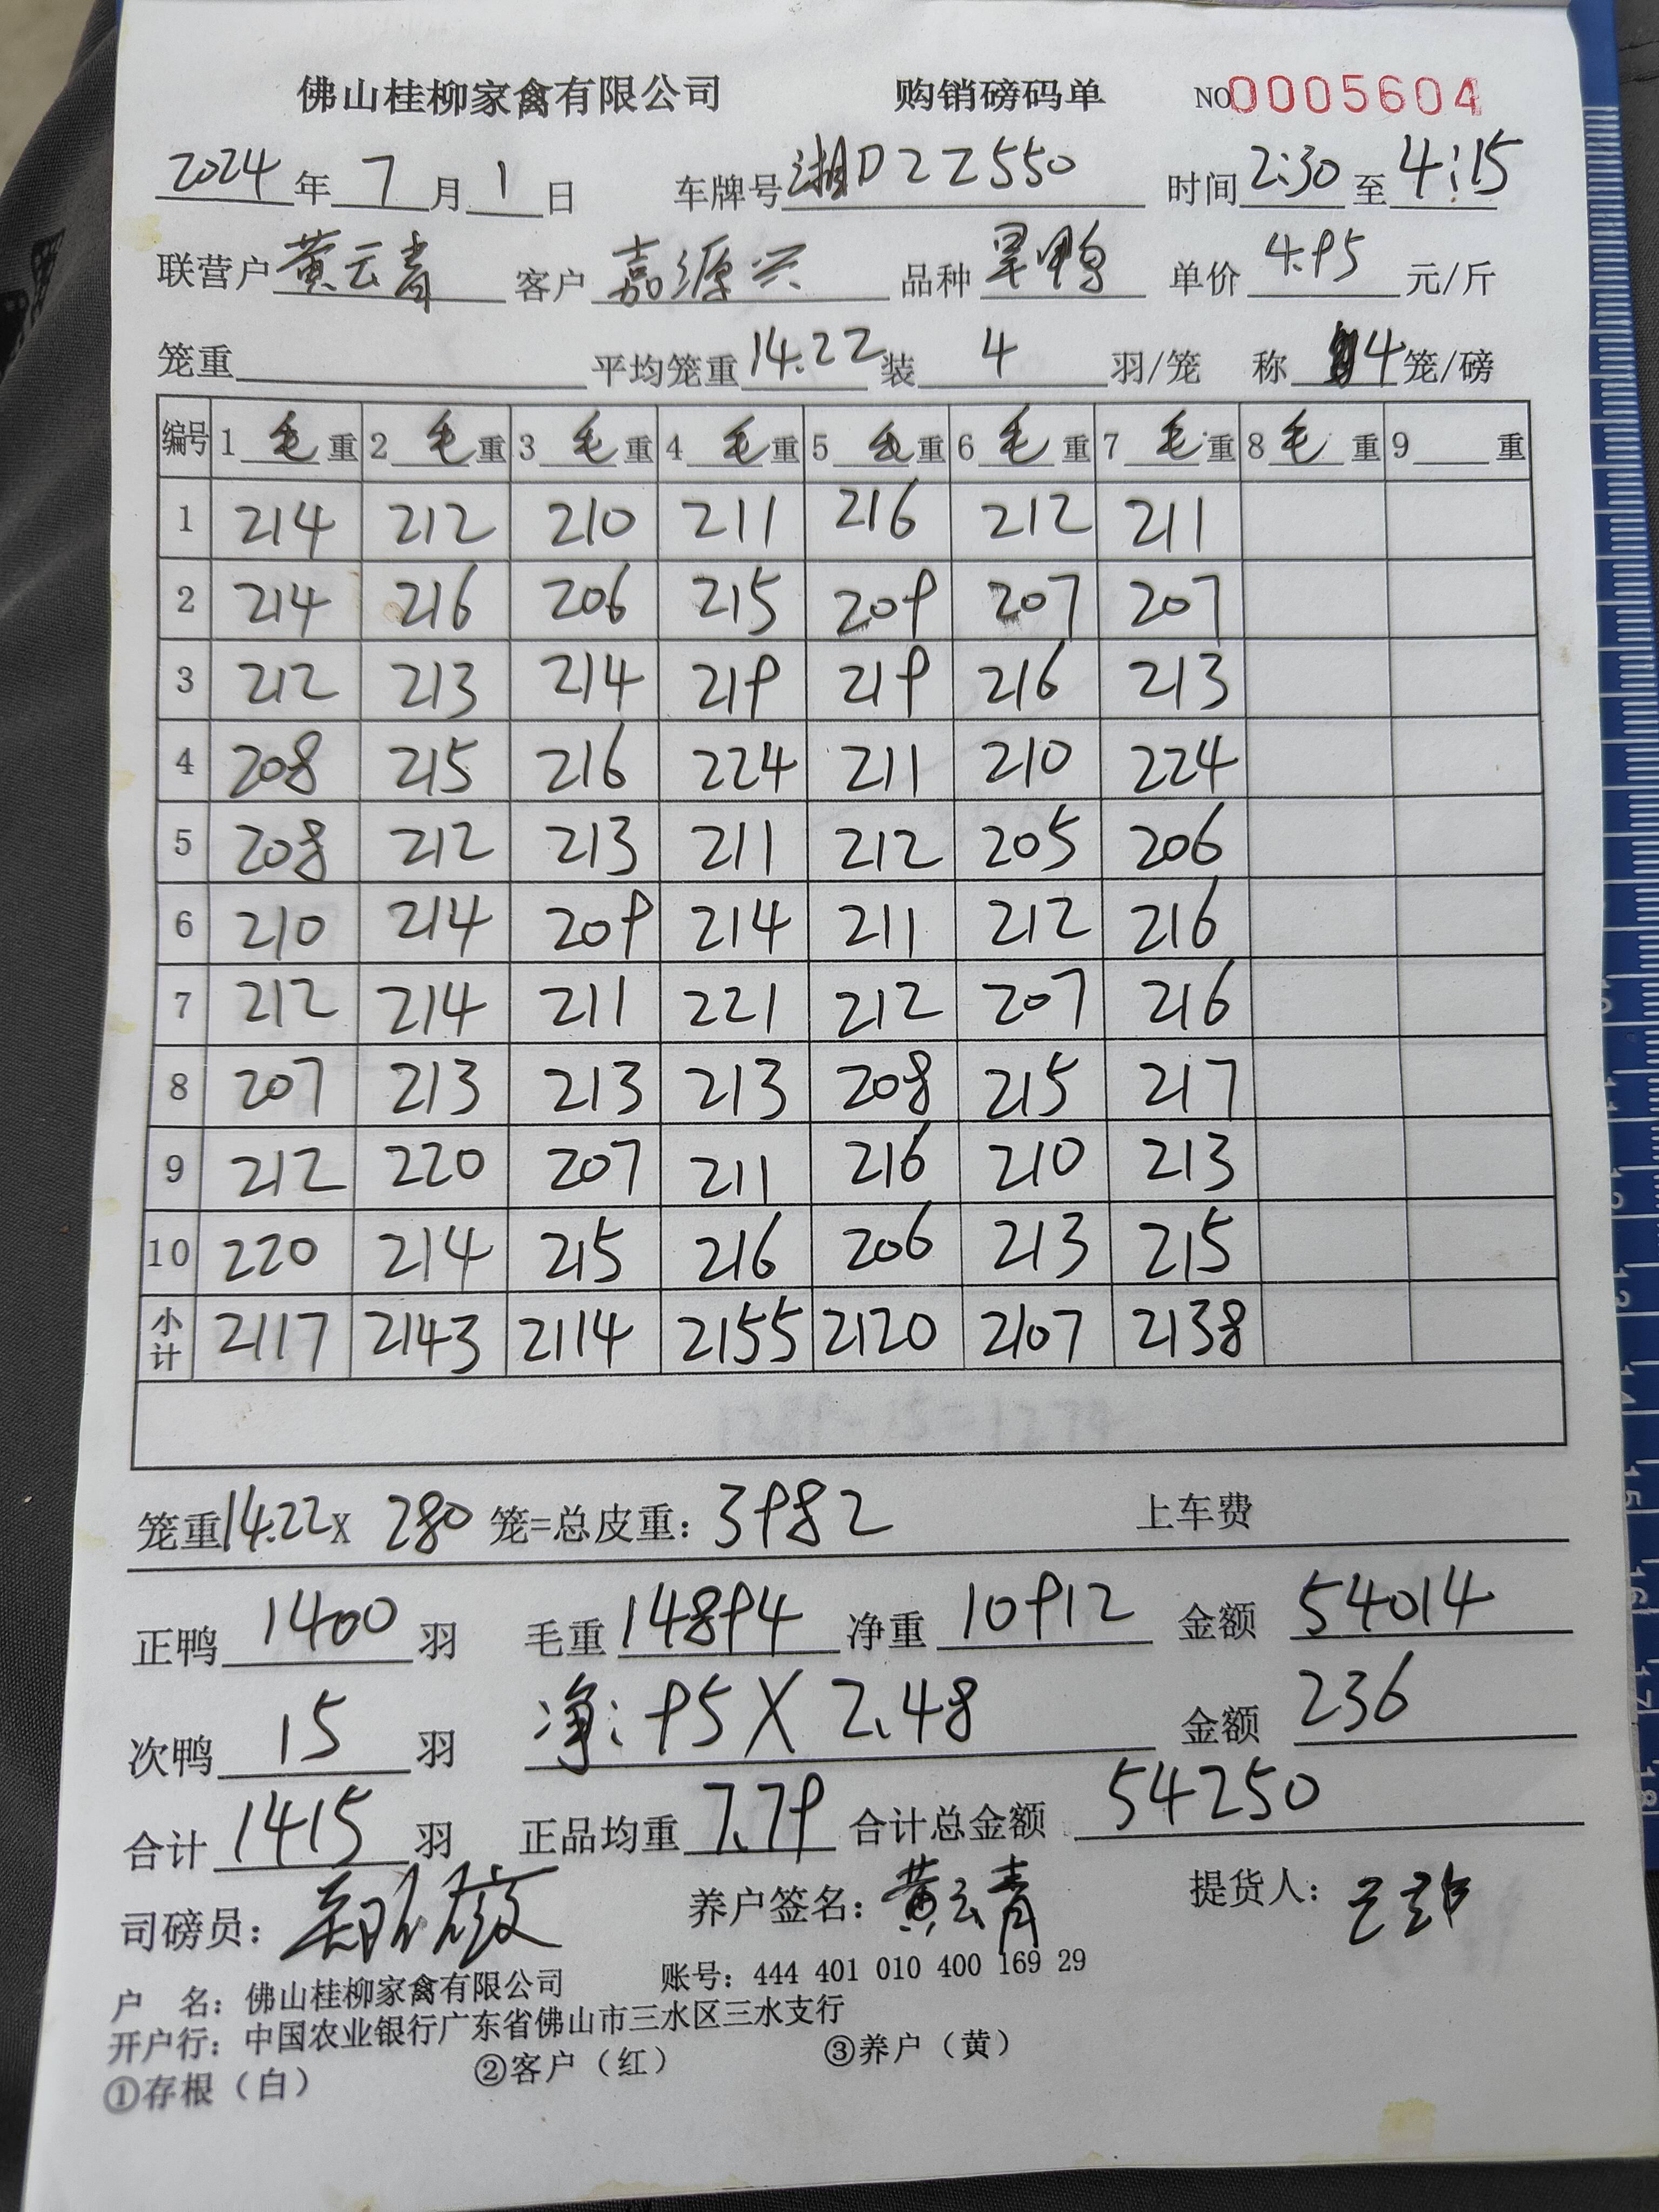 佛山桂柳家禽有限公司 购销磅码单 NO0005604
2024年7月1日 车牌号湘DZZ550 时间2:30至4:15
联营户黄云青 客户嘉源兴 品种旱鸭 单价4.95元/斤
笼重 平均笼重14.22装4羽/笼 称4笼/磅
编号 1毛重 2毛重 3毛重 4毛重 5毛重 6毛重 7毛重 8毛重 9重
1 214 212 210 211 216 212 211
2 214 216 206 215 209 207 207
3 212 213 214 219 219 216 213
4 208 215 216 224 211 210 224
5 208 212 213 211 212 205 206
6 210 214 209 214 211 212 216
7 212 214 211 221 212 207 216
8 207 213 213 213 208 215 217
9 212 220 207 211 216 210 213
10 220 214 215 216 206 213 215
小计 2117 2143 2114 2155 2120 2107 2138
笼重14.22X 280笼=总皮重:3982 上车费
正鸭1400羽 毛重14894净重10912 金额54014
次鸭15羽 净:95X2.48 金额236
合计1415羽 正品均重7.79合计总金额54250
司磅员: 养户签名:黄云青 提货人:
户 名:佛山桂柳家禽有限公司 账号:444 401 010 400 169 29
开户行:中国农业银行广东省佛山市三水区三水支行
①存根(白) ②客户(红) ③养户(黄)